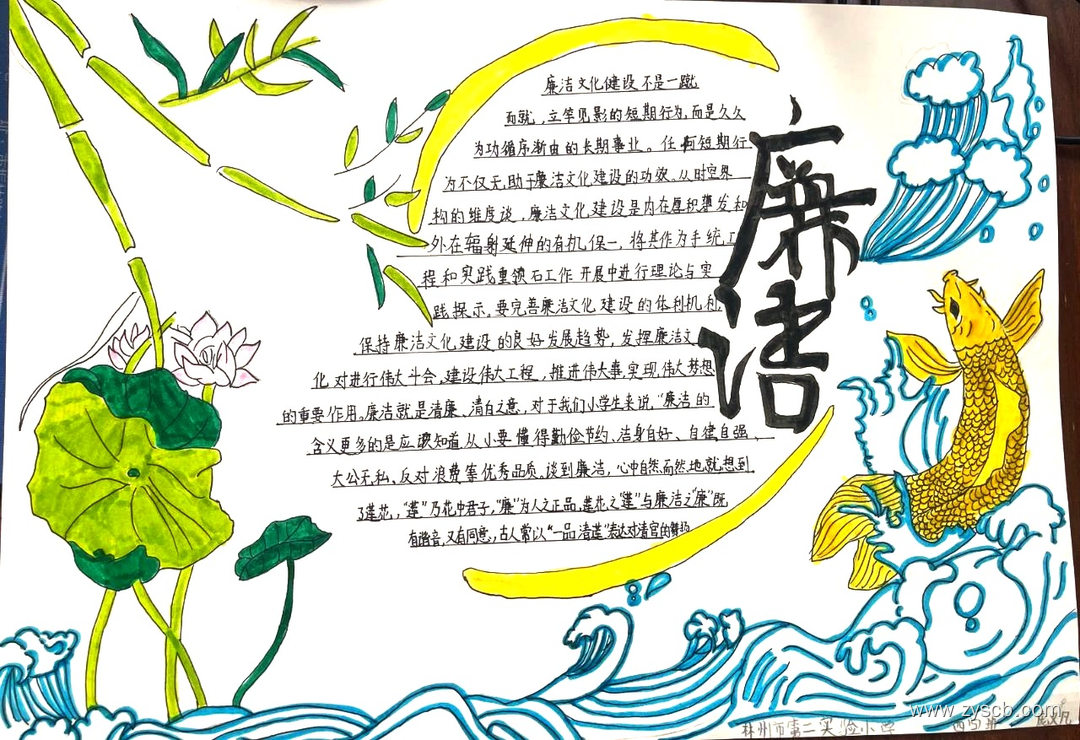 廉洁文化建设不是一蹴
而就，立竿见影的短期行为，而是久久
为功循序渐由的长期事业。任何短期行
为不仅无助于廉洁文化建设的功效。从时空界
构的维度说，廉洁文化建设是内在厚积集发和
外在辐射延伸的有机保一，将其作为手统工
程和实践重领石工作开展中进行理论与实
践探示，要完善廉洁文化建设的体利机利
保持廉洁文化建设的良好发展趋势，发挥廉洁文
化对进行伟大斗会，建设伟大工程，推进伟大事，实现伟大梦想
的重要作用。廉洁就是清廉、清白之意，对于我们小学生来说，“廉洁的
含义更多的是应该知道从小要懂得勤俭节约、洁身自好、自律自强、
大公无私、反对浪费等优秀品质。谈到廉洁，心中自然而然地就想到
了莲花，“莲”乃花中君子，“廉”为人之正品，莲花之“莲”与廉洁之“廉”既
有谐音，又有同意，古人常以“一品清莲”表达对清官的
廉洁
林州市第二实验小学 四5班
www.zyscb.com